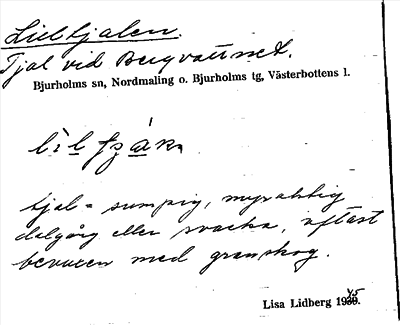 Lillkjalen.
Tjal vid Bergvattnet.
Bjurholms sn, Nordmaling o. Bjurholms tg, Västerbottens l.
kjal = sumpig, myraktig
dalgång eller svacka, oftast
bevuxen med granskog.
Lisa Lidberg 1945.